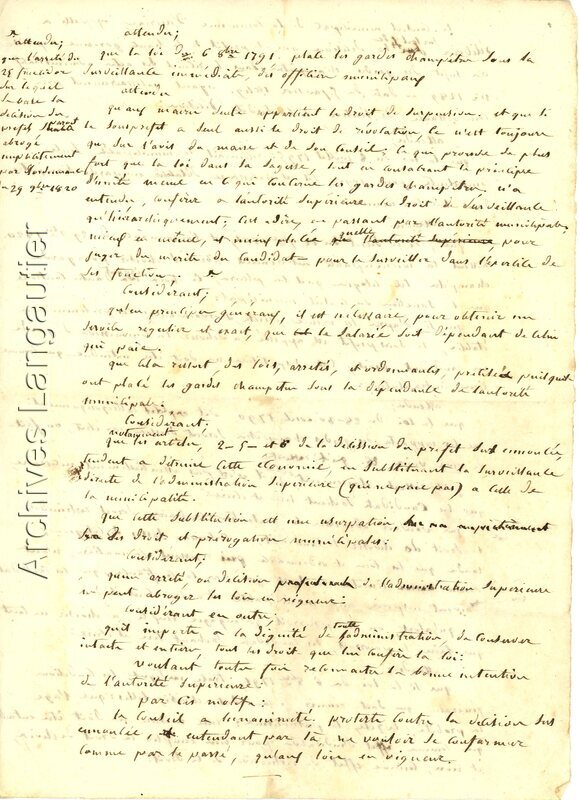 attendu;
que l'arreté du
25 fructidor
sur lequel
se base la
décision du
prefet parait
abrogé
implicitement
par l'ordonnance
du 29 9bre 1820
attendu;
que la loi du 6 8bre 1791. place les gardes champetre sous la
surveillance immédiate, des officiers municipaux
attendu
qu'aux maires seuls appartient le droit de suspension. et que si
le sousprefet a seul aussi le droit de révocation, ce n'est toujours
que sur l'avis du maire et de son conseil: ce qui prouve de plus
fort que la loi dans sa sagesse, tout en consacrant le principe
d'unité meme en ce qui concerne les gardes champetre, n'a
entendu, conférer a l'autorité superieure le droit de surveillance
qu'hierarchiquement; c'est adire, en passant par l'autorité municipale,
mieux en même, et mieux placée quelle pour
juger du merite du candidat pour le surveiller dans l'exercice de
ses fonction.
Considérant;
qu'en principes généraux, il est nécessaire, pour obtenir un
service regulier et exact, que le salarié soit dépendant de celui
qui paie.
que cela ressort, des lois, arretés, et ordonnances, précités puisqu'ils
ont placé les gardes champetre sous la dépendance de l'autorité
municipale:
Considérant;
notamment
que les articles, 2-5- et 6 de la décission du prefet sus enoncée,
tendent a détruire cette économie, en substituant la surveillance
directe de l'administration superieure (qui ne paie pas) a celle de
la municipalité.
que cette substitution est une usurpation,
des droit et prérogation municipales:
Considérant;
qu'un arreté, ou décision de l'administration superieure
ne peut abroger les lois en vigueur:
Considérant en outre,
qu'il importe a la dignité de toutte administration, de conserver
intacts et entiers, tous les droit que lui confère la loi:
voulant toute fois reconnaitre la bonne intention
de l'autorité supérieure:
par ces motifs:
le Conseil a lunanimité. proteste contre la décision sus
ennoncée, entendant par la, ne vouloir se conformer
comme par le passé, qu'aux lois en vigueur.
Archives Langautier